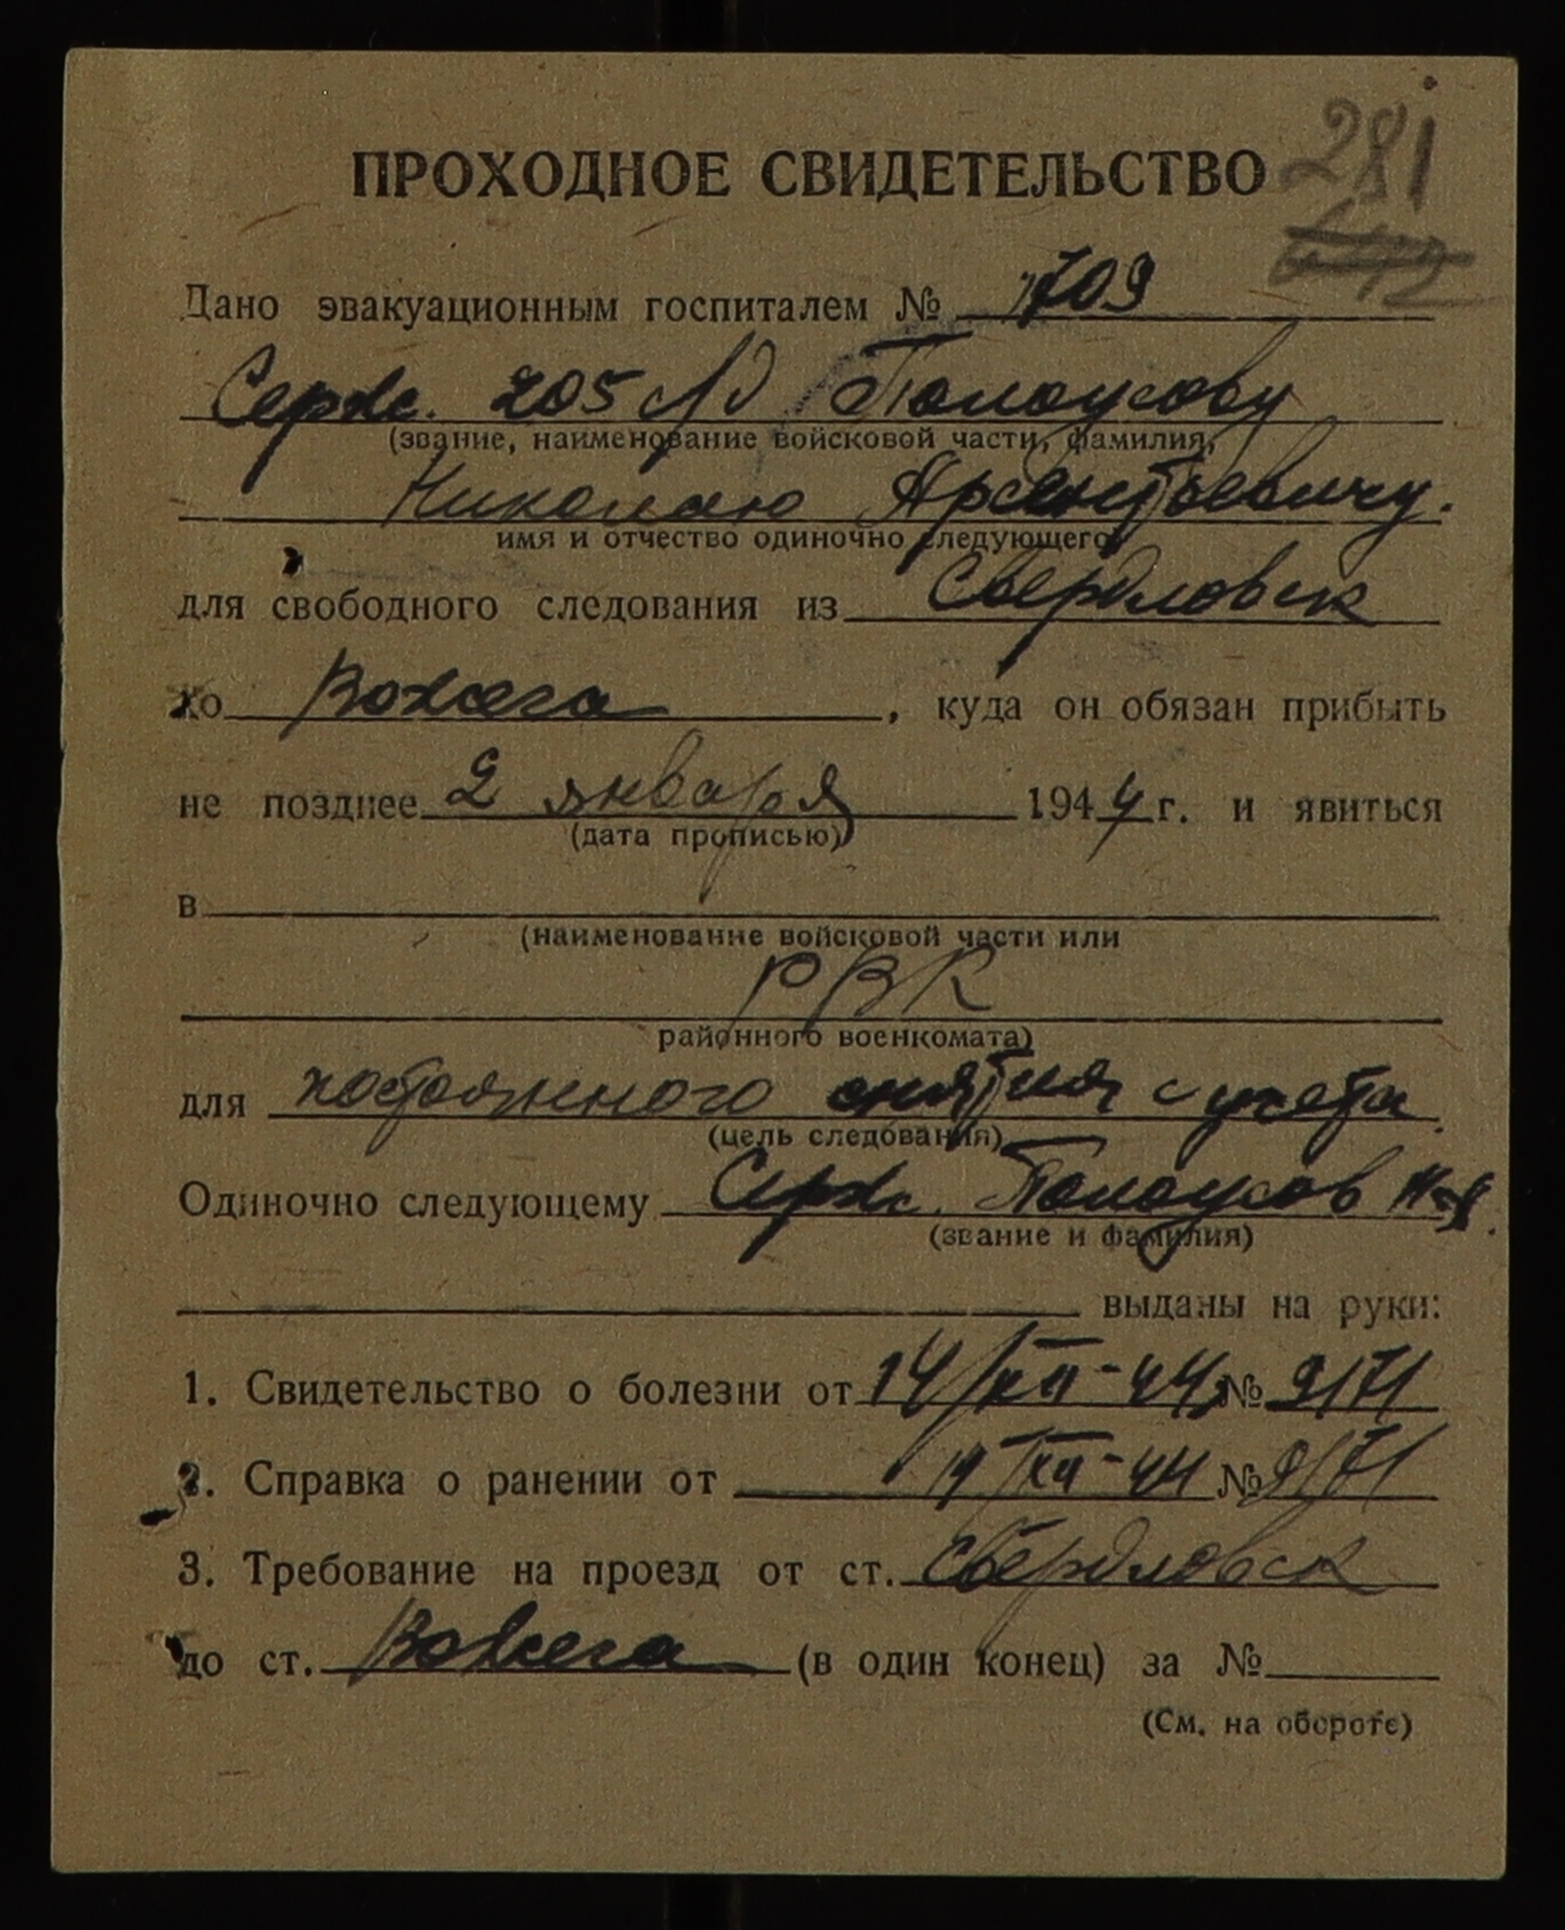 281
ПРОХОДНОЕ СВИДЕТЕЛЬСТВО
Дано эвакуационным госпиталем № 1709
Серж. 205 СД Полоусову
(звание, наименование войсковой части, фамилия,
Николаю Арсентьевичу.
имя и отчество одиночно следующего)
для свободного следования из Свердловск
до Вожега, куда он обязан прибыть
не позднее 2 января 1944 г. и явиться
(дата прописью)
в
(наименование войсковой части или
РВК
районного военкомата)
для постоянного снятия с учета
(цель следования)
Одиночно следующему Серж. Полоусов
(звание и фамилия)
выданы на руки:
1. Свидетельство о болезни от 14/XII-44 № 9171
2. Справка о ранении от 14/XII-44 № 9171
3. Требование на проезд от ст. Свердловск
до ст. Вожега (в один конец) за №
(См. на обороте)